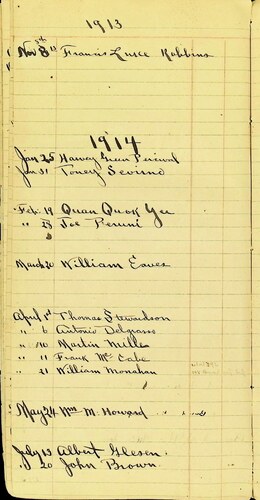 1913
Nov 8th Francis Luke Robbins
1914
Jan 25 Harvey Green Percival
Jan 31 Toney Sevirno
Feb. 19 Quan Quok Yee
" 28 Joe Peruni
March 20 William Eaves
April 1st Thomas Stewardson
" 6 Antonio Delgrasso
" 10 Martin Miller
" 11 Frank Mc Cabe
" 21 William Monahan
May 24 Wm M. Howard
July 13 Albert Gleser.
" 20 John Brown.